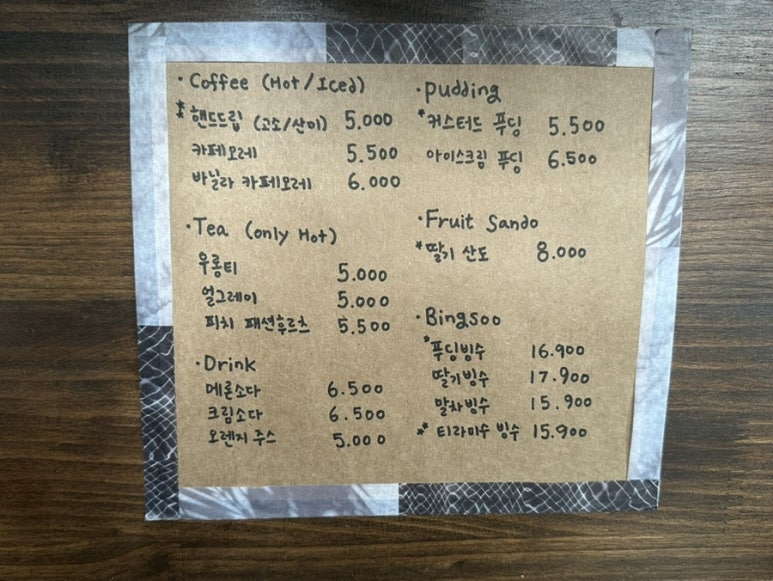 · Coffee (Hot/Iced)
** 핸드드립 (고소/산미) 5.000
카페오레 5.500
바닐라 카페오레 6.000
· Tea (only Hot)
우롱티 5.000
얼그레이 5.000
피치 패션후르츠 5.500
· Drink
메론소다 6.500
크림소다 6.500
오렌지 주스 5.000
· pudding
* 커스터드 푸딩 5.500
아이스크림 푸딩 6.500
· Fruit Sando
* 딸기 산도 8.000
· Bingsoo
* 푸딩빙수 16.900
딸기빙수 17.900
말차빙수 15.900
** 티라미수 빙수 15.900